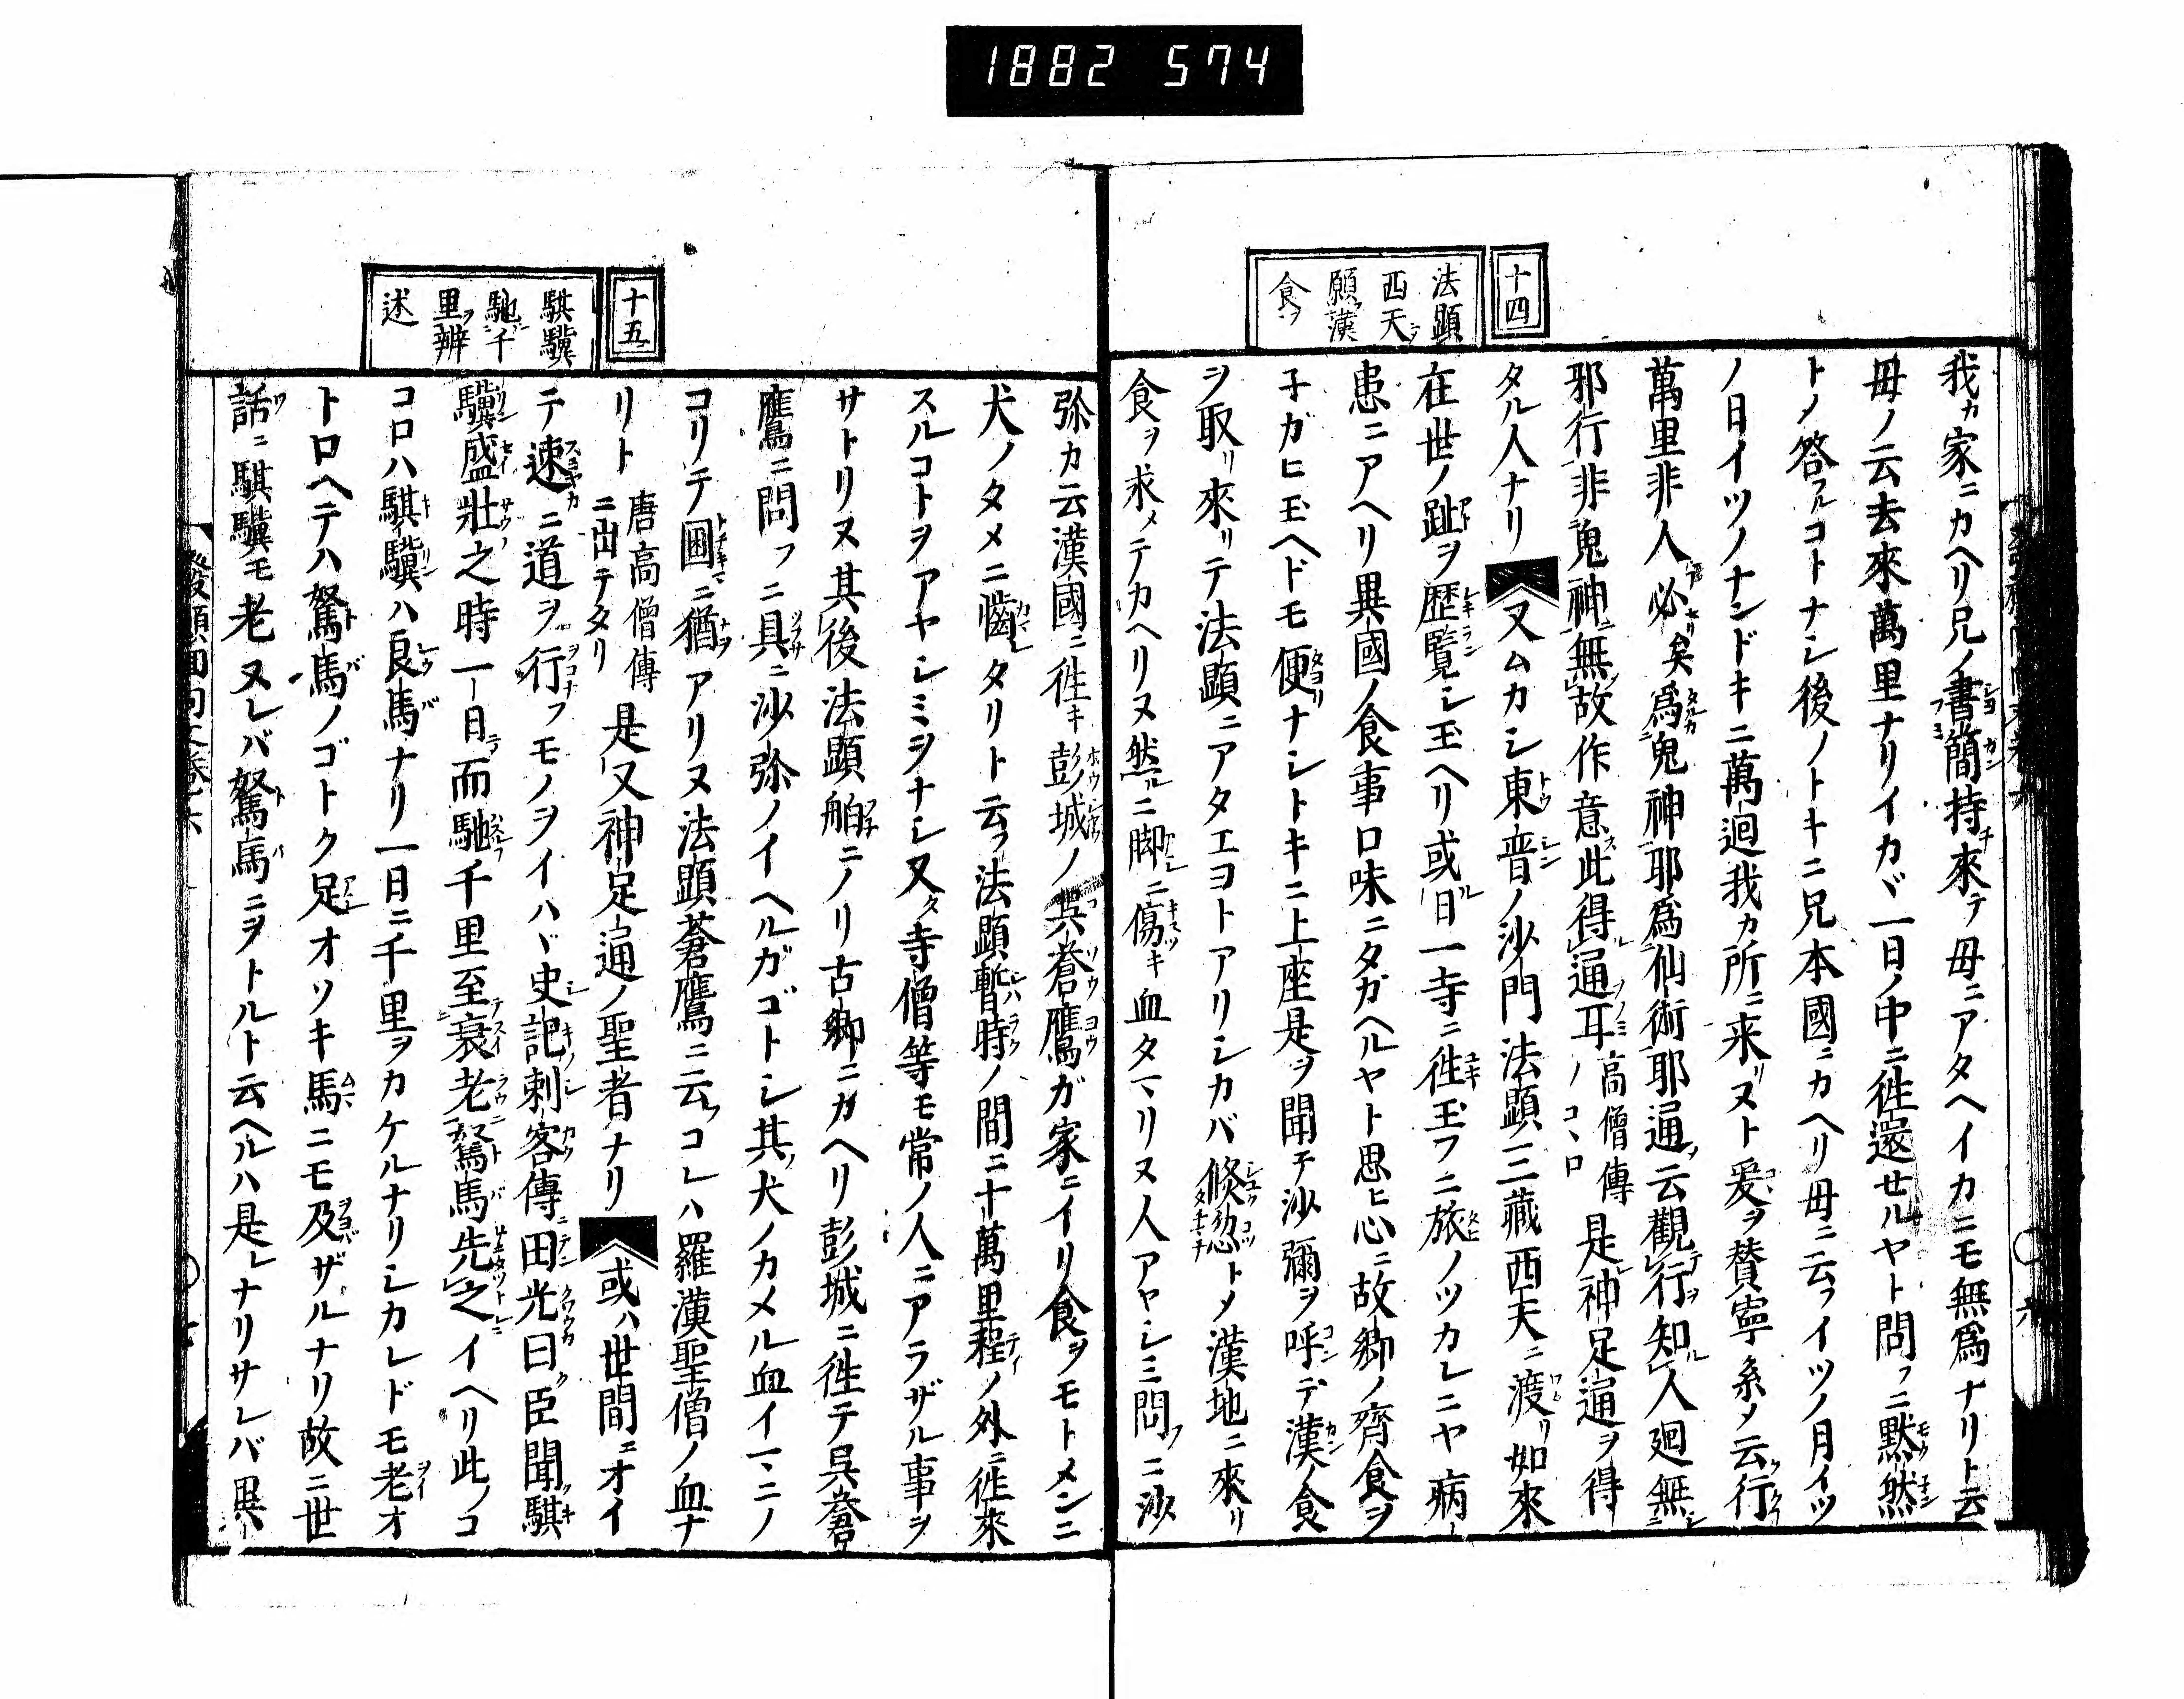 1882 574
十四
法顕
西天ヲ
願漢
食ヲ
我カ家ニカヘリ兄ノ書簡持チ來テ母ニアタヘイカニモ無爲ナリト云
母ノ云去來萬里ナリイカヾ一日ノ中ニ徃還セルヤト問フニ黙然
トノ答フルコトナシ後ノトキニ兄本國ニカヘリ母ニ云フイツノ月イツ
ノ日イツノナンドキニ萬迴我カ所ニ来リヌト爰ヲ賛寧系ノ云行
萬里非人必矣爲鬼神耶爲仙術耶通云觀行知人廻無
邪行非鬼神無故作意此得通耳高僧傳ノコヽロ是神足通ヲ得
タル人ナリ又ムカシ東晉ノ沙門法顕三藏西天ニ渡リ如來
在世ノ趾ヲ歴覧シ玉ヘリ或日一寺ニ徃玉フニ旅ノツカレニヤ病
患ニアヘリ異國ノ食事口味ニタガヘルヤト思ヒ心ニ故郷ノ齊食ヲ
子ガヒ玉ヘドモ便ナシトキニ上座是ヲ聞テ沙彌ヲ呼デ漢食
ヲ取リ來リテ法顕ニアタエヨトアリシカバ倐忽トメ漢地ニ來リ
食ヲ求メテカヘリヌ然ルニ脚ニ傷キ血タマリヌ人アヤシミ問フニ沙
十五
騏驥
馳千
里辨
述
弥カ云漢國ニ徃キ彭城ノ呉蒼鷹ガ家ニイリ食ヲモトメシニ
犬ノタメニ齧タリト云フ法顕暫時ノ間ニ十萬里程ノ外ニ徃來
スルコトヲアヤシミヲナシ又タ寺僧等モ常ノ人ニアラザル事ヲ
サトリヌ其後法顕舶ニノリ古郷ニカヘリ彭城ニ徃テ呉蒼
鷹ニ問フニ具ニ沙弥ノイヘルガゴトシ其ノ犬ノカメル血イマニノ
コリテ圖ニ猶アリヌ法顕蒼鷹ニ云フコレハ羅漢聖僧ノ血ナ
リト唐高僧傳ニ出テタリ是又神足通ノ聖者ナリ或ハ世間ニオイ
テ速ニ道ヲ行フモノヲイハヾ史記刺客傳田光曰臣聞騏
驥盛壯之時一日而馳千里至衰老駑馬先之イヘリ此ノコ
コロハ騏驥ハ良馬ナリ一日ニ千里ヲカケルナリシカレドモ老オ
トロヘテハ駑馬ノゴトク足オソキ馬ニモ及ザルナリ故ニ世
話ニ騏驥モ老ヌレバ駑馬ニヲトルト云ヘルハ是レナリサレバ異